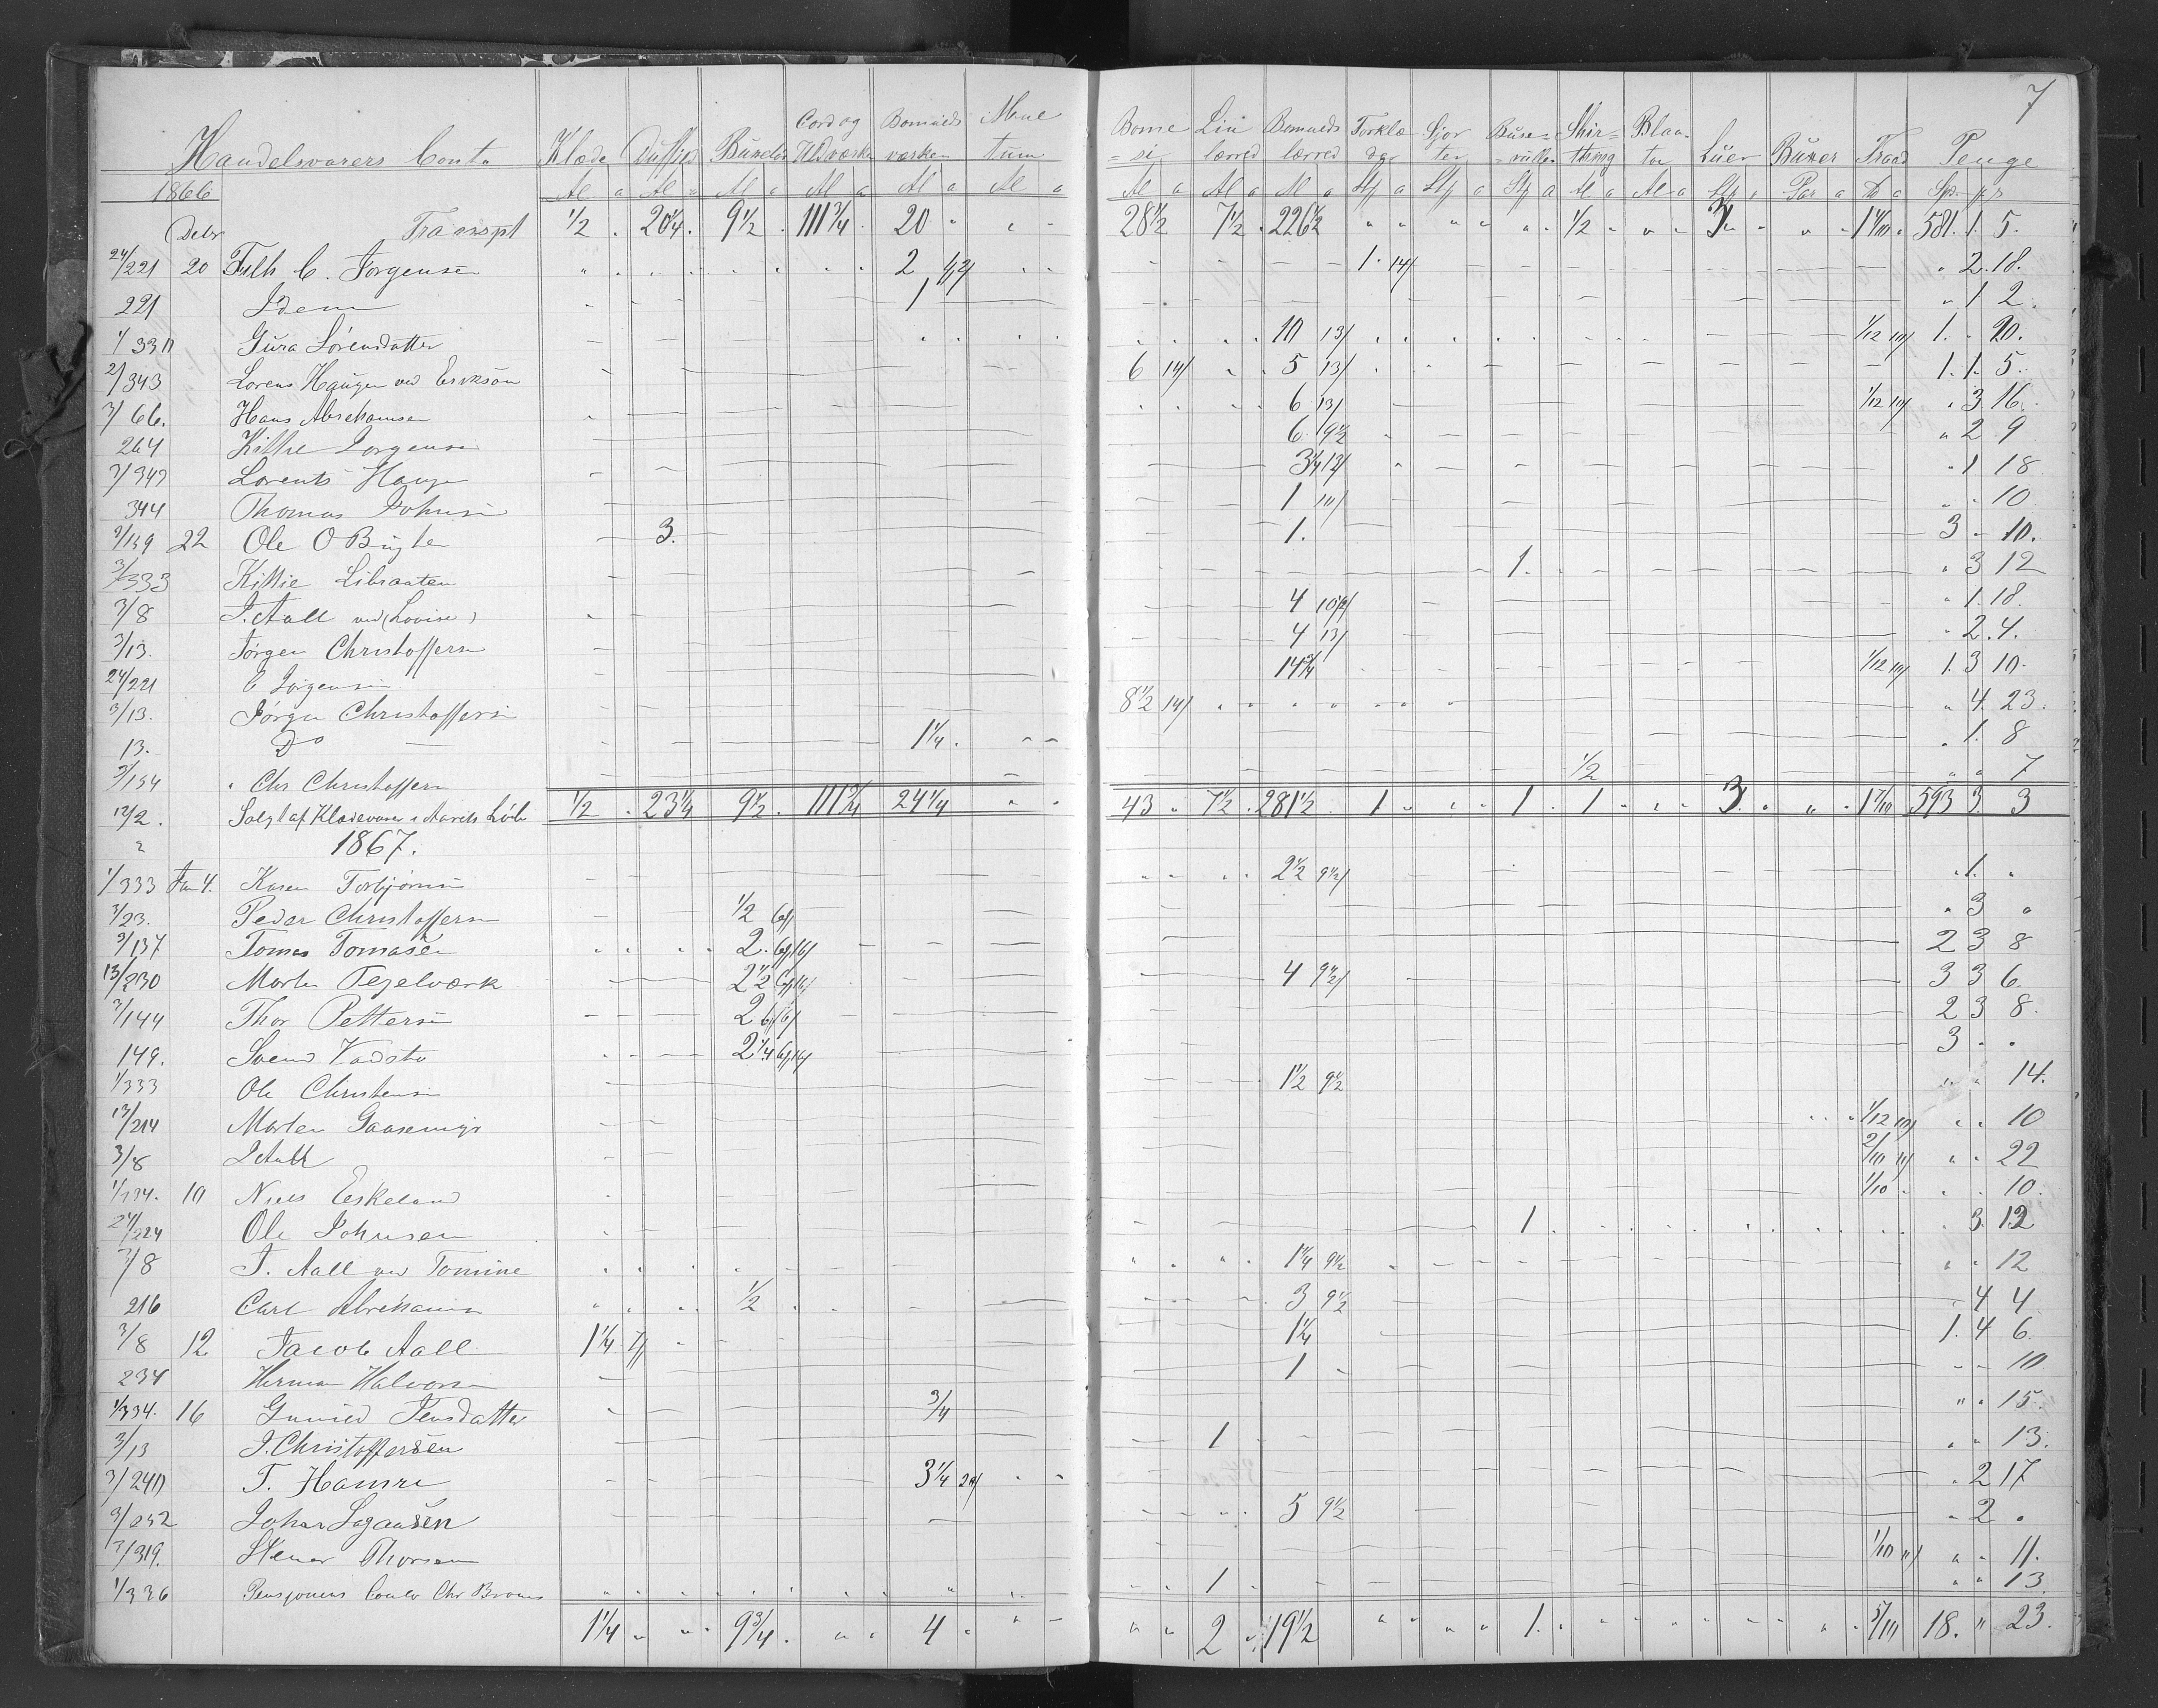 7
Handelsvarers Conto Klæde Duffel Buxetøi Cord og Uldværken Bomulds værken Mne tum Bome=si Lin lærred Bomulds lærred Torklæ der Sjor ter Buse=rulle Shir=thing Blaa-tøi Luer Buxer Traad Penge
1866 Al a Al a Al a Al a Al a Al a Al a Al a Al a Stk a Stk a Stk a Al a Al a Stk Par a ℔ a Spd. ƒ s
Debr Transpt 1/2 20 1/4 9 1/2 111 3/4 20 " 28 1/2 7 1/2 226 1/2 " " 1/2 " 3 " 581. 1. 5.
24/221 20 Fllh C. Jørgensen 2 1. 14/ " 2. 18.
221 Idem 1 " 1 2.
1/330 Gura Sørensdatter 10 13/ 1/12 10/ 1. - 20.
2/343 Lorens Haugen ved Erikson 6 14/ 5 13/ 1. 1. 5.
3/66. Hans Abrahamsen 6 13/ 1/12 10/ " 3 16.
264 Kittie Jorgensen 6 9 1/2 " 2 9
2/343 Lorents Haugen 3 1/4 13/ " 1 18
344 Thomas Johnsen 1 10/ " - 10
3/139 22 Ole O Bugten 3. 1. 3 - 10.
3/333 Kittie Libraaten 1. " 3 12
3/8 J. Aall ved (Lovise) 4 " 1. 18.
3/13. Jørgen Christoffersen 4 13/ " 2. 4.
24/221 C Jørgensen 14 3/4 1/12 10/ 1. 3 10.
3/13. Jørgen Christoffersen 8 1/2 14/ " 4. 23.
13. Do 1 1/4. " 1. 8
3/154 " Chr Christoffersen 1/2 " " 7
12/2. Solgt af Klædevarer i Aarets Løb 1/2 . 23 1/4 9 1/2 . 111 3/4 24 1/4 43 " 7 1/2 . 281 1/2 1 " 1 . 1 . 3. 593 3. 3
" 1867.
1/333 Jan 4. Karen Torbjørnsen 2 1/2 9 1/2/ " 1. "
3/23. Peder Christoffersen 1/2 " 3 "
3/137 Tomas Tomasen 2. 2 3 8
13/230 Morten Tegelværk 2 1/2 4 9 1/2/ 3 3 6
3/144 Thor Pettersen 2 2 3 8.
149. Svend Vadsto 2 1/4 3 . .
1/333 Ole Christensen 1 1/2 9 1/2 " " 14.
13/214 Morten Gaasemyr 1/12 10/ " . 10
3/8 J Aall 2/10 " . 22
1/334. 10 Niels Eskeland 1/10 . . 10.
24/224 Ole Johnsen 1. " 3. 12
3/8 J. Aall ved Tomine 1 1/4 9 1/2 " " 12
216 Carl Abrahams 1/2 3 9 1/2 . 4 4
3/8 12 Jacob Aall 1 1/4 1 1/4 1. 4 6
234 Herman Halvorsen 1 - - 10
1/334. 16 Gunild Jensdatter 3/4 " . 15.
3/13 J. Christoffersen 1 " . 13.
3/240 T. Hamre 3 1/4 20/ " 2 17
3/252 Johan Sagaasen 5 9 1/2 " 2 "
3/319. Stener Thorsen 1/10 11/ " " 11.
1/336 Pensjonens Conto Chr Bromes 1 " " 13.
1 1/4 " " 9 3/4 . " " 4 " " " 2 " 19 1/2 " " 1. " 5/10 18. " 23.